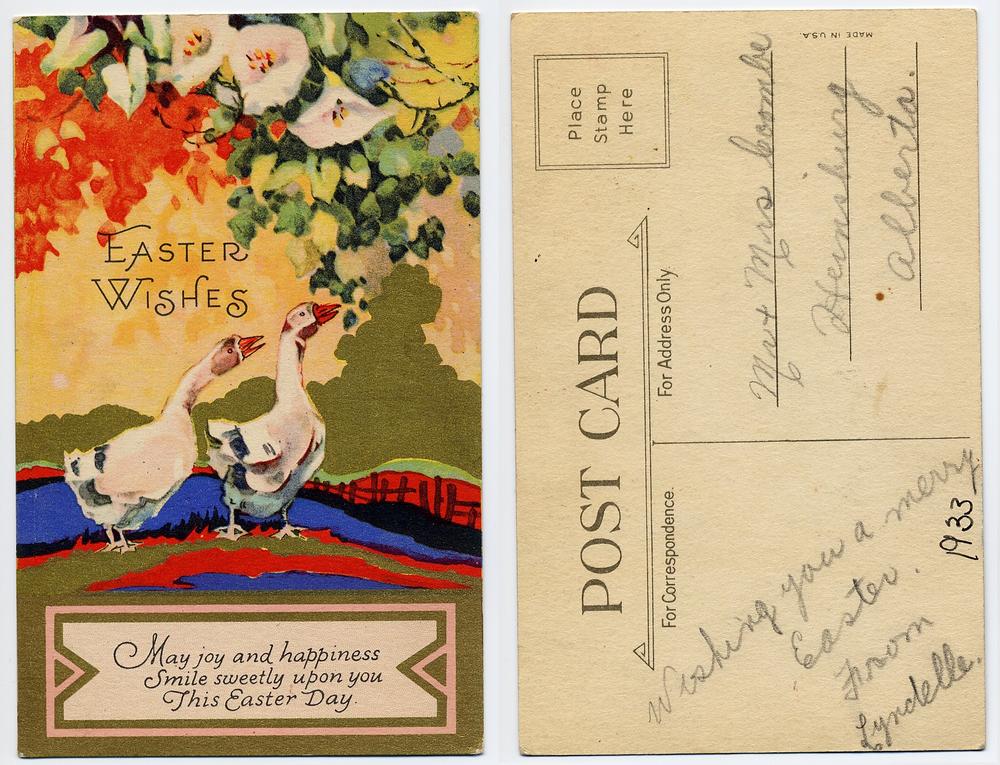 EASTER
WISHES
May joy and happiness
Smile sweetly upon you
This Easter Day.
MADE IN U.S.A.
Place
Stamp
Here
POST CARD
For Address Only.
For Correspondence.
Mr + Mrs Coombe
Heinsburg
Alberta.
Wishing you a merry
Easter.
From
Lyndelle.
1933